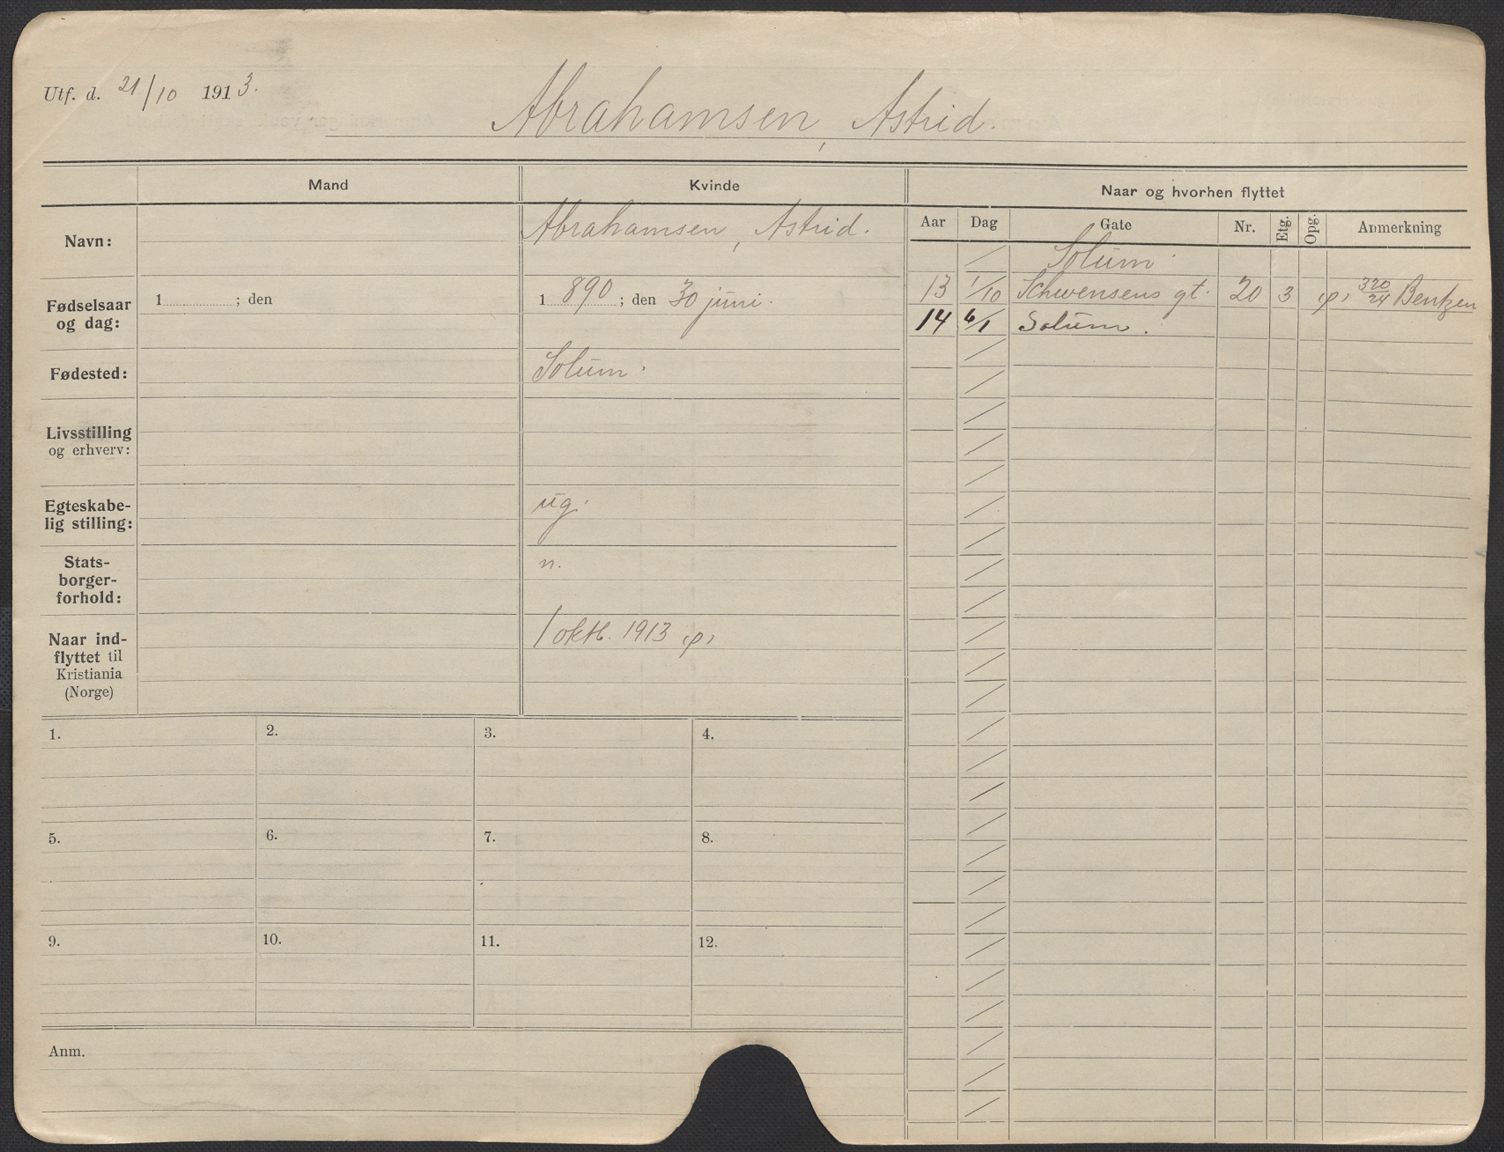 Utf. d. 21/10 1913.
Abrahamsen, Astrid.
Mand
Kvinde
Naar og hvorhen flyttet
Aar Dag Gate Nr. Etg. Opg. Anmerkning
Navn:
Abrahamsen, Astrid.
Solum.
Fødselsaar og dag:
1 ; den
1 890 ; den 30 juni.
13 1/10 Schwensens gt. 20 3 320/24 Bentzen
14 6/1 Solum.
Fødested:
Solum.
Livsstilling
og erhverv:
Egteskabe-
lig stilling:
ug.
Stats-
borger-
forhold:
n.
Naar ind-
flyttet til
Kristiania
(Norge)
1 oktb. 1913
1. 2. 3. 4.
5. 6. 7. 8.
9. 10. 11. 12.
Anm.